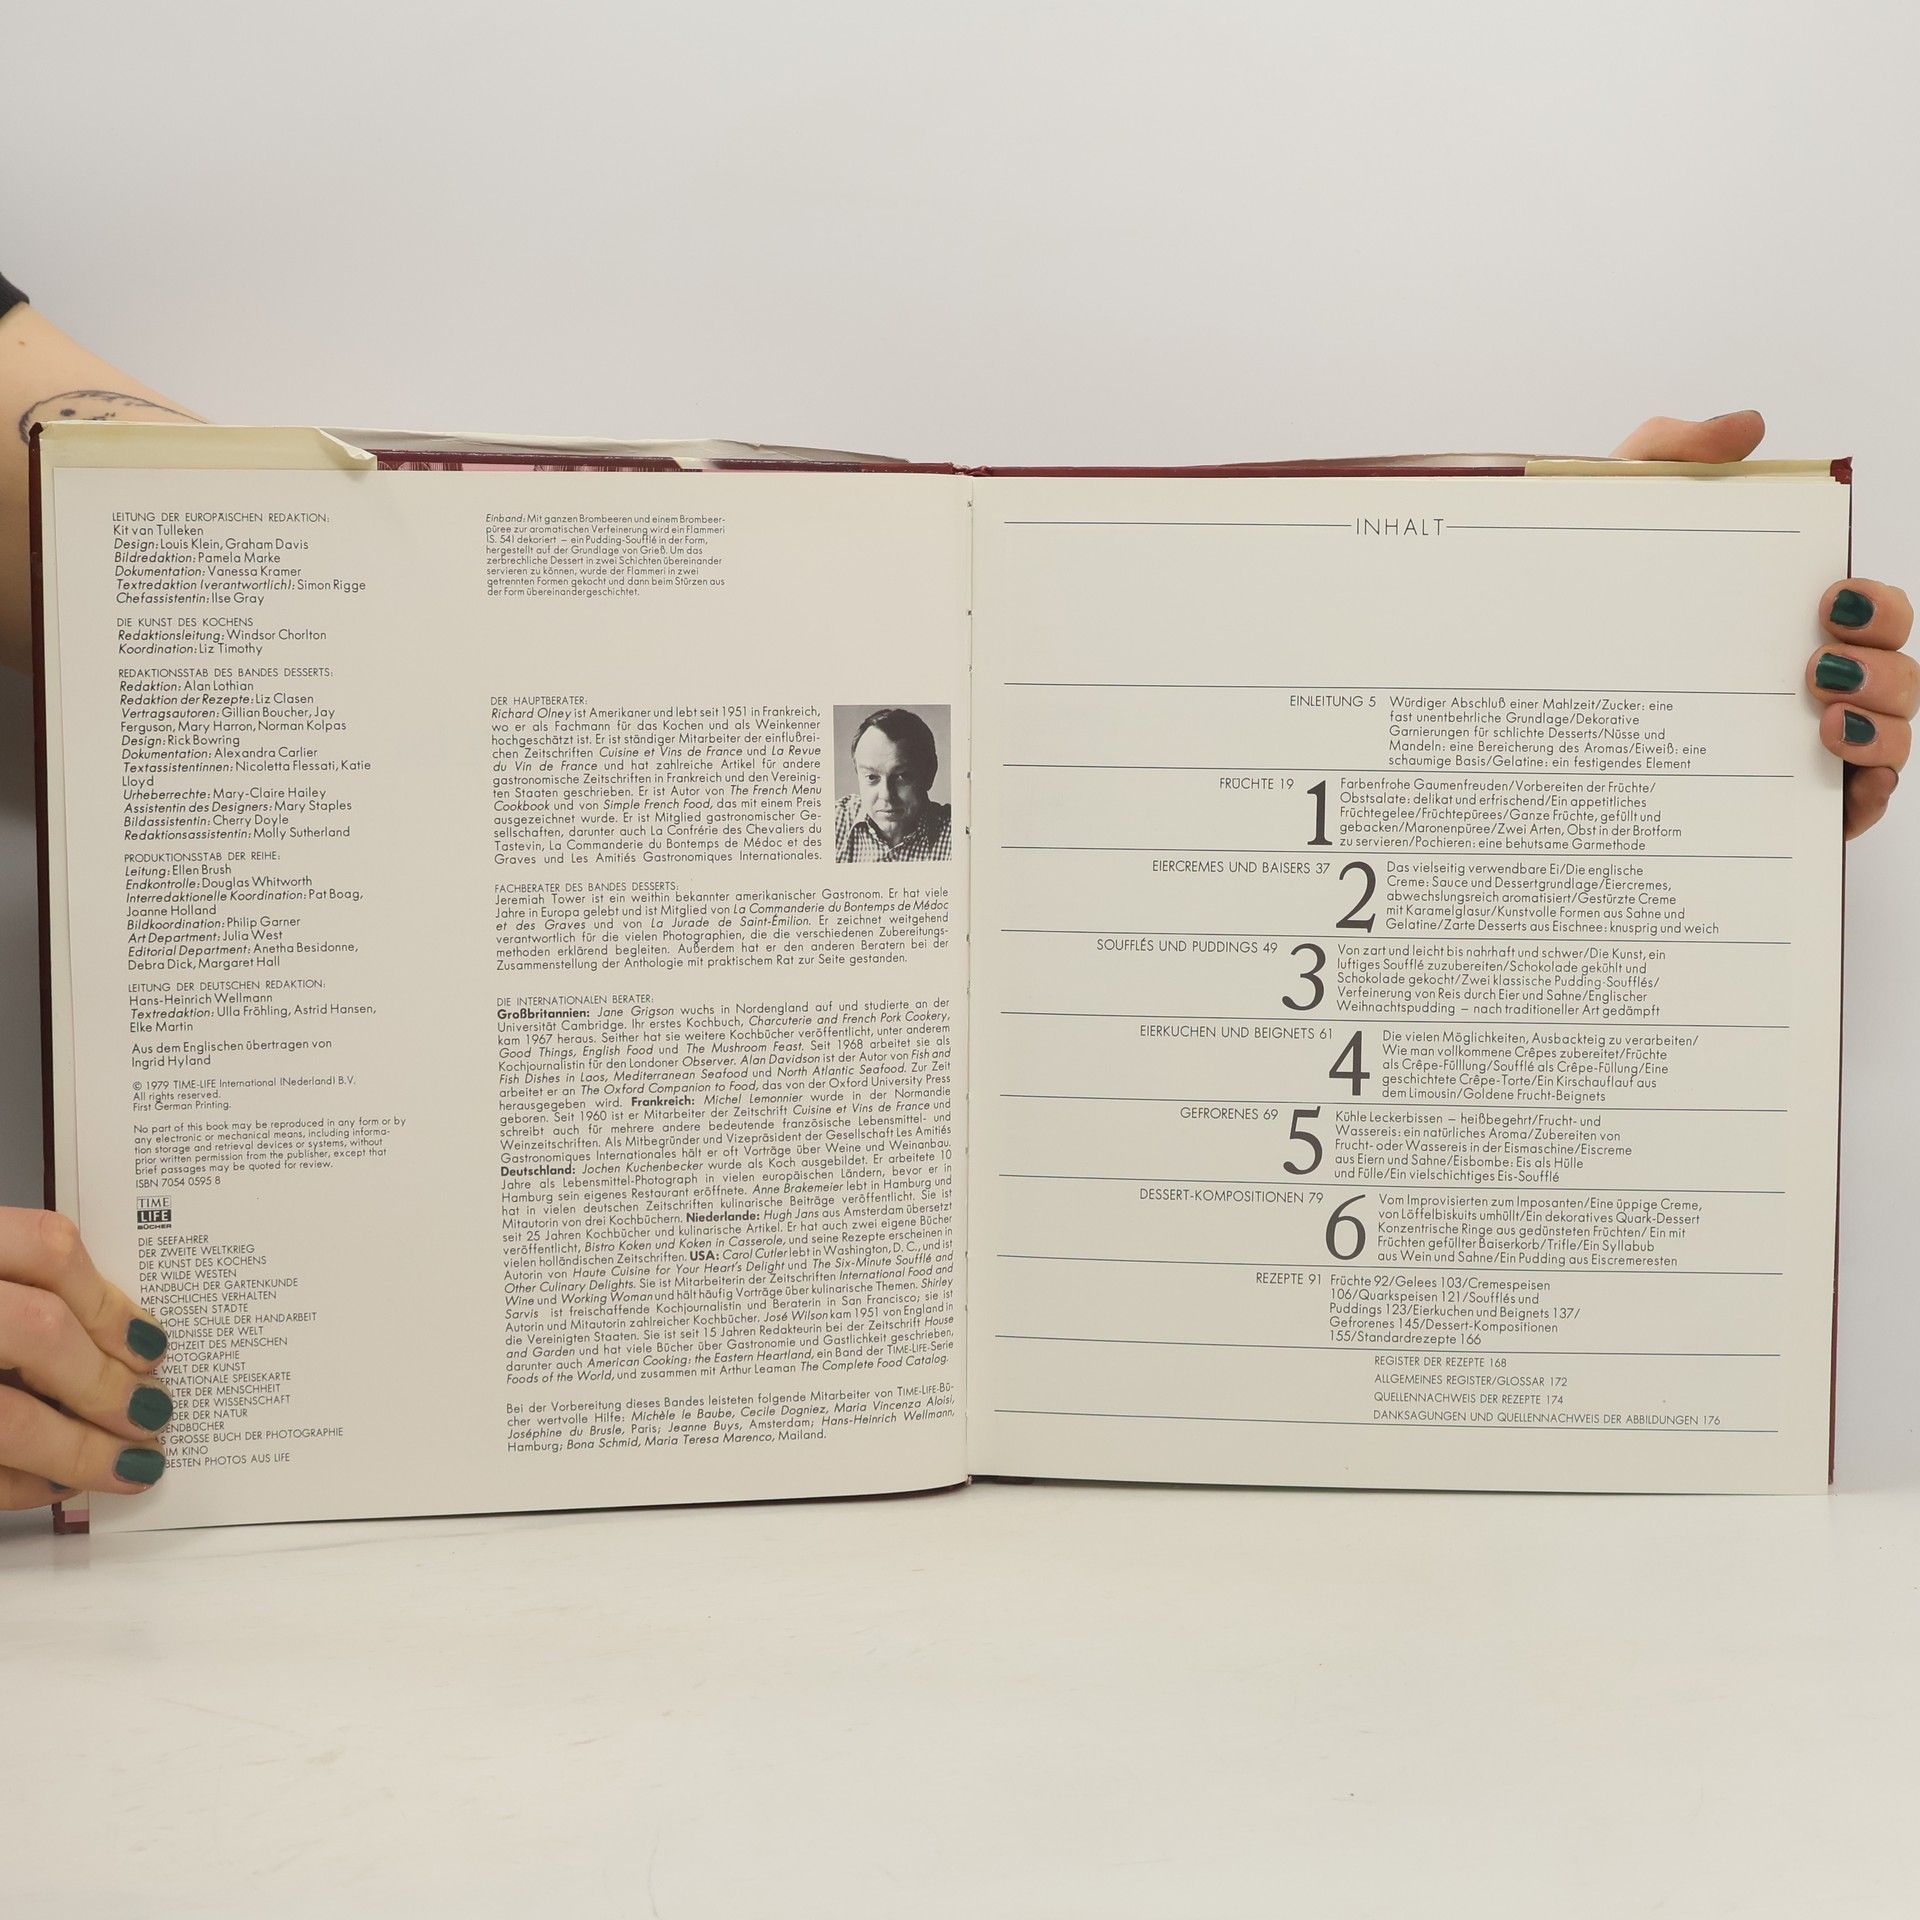 LEITUNG DER EUROPÄISCHEN REDAKTION:
Kit van Tulleken
Design: Louis Klein, Graham Davis
Bildredaktion: Pamela Marke
Dokumentation: Vanessa Kramer
Textredaktion (verantwortlich): Simon Rigge
Chefassistentin: Ilse Gray
DIE KUNST DES KOCHENS
Redaktionsleitung: Windsor Chorlton
Koordination: Liz Timothy
REDAKTIONSSTAB DES BANDES DESSERTS:
Redaktion: Alan Lothian
Redaktion der Rezepte: Liz Clasen
Vertragsautoren: Gillian Boucher, Jay
Ferguson, Mary Harron, Norman Kolpas
Design: Rick Bowring
Dokumentation: Alexandra Carlier
Textassistentinnen: Nicoletta Flessati, Katie
Lloyd
Urheberrechte: Mary-Claire Hailey
Assistentin des Designers: Mary Staples
Bildassistentin: Cherry Doyle
Redaktionsassistentin: Molly Sutherland
PRODUKTIONSSTAB DER REIHE:
Leitung: Ellen Brush
Endkontrolle: Douglas Whitworth
Interredaktionelle Koordination: Pat Boag,
Joanne Holland
Bildkoordination: Philip Garner
Art Department: Julia West
Editorial Department: Anetha Besidonne,
Debra Dick, Margaret Hall
LEITUNG DER DEUTSCHEN REDAKTION:
Hans-Heinrich Wellmann
Textredaktion: Ulla Fröhling, Astrid Hansen,
Elke Martin
Aus dem Englischen übertragen von
Ingrid Hyland
© 1979 TIME-LIFE International (Nederland) B.V.
All rights reserved.
First German Printing.
No part of this book may be reproduced in any form or by
any electronic or mechanical means, including informa-
tion storage and retrieval devices or systems, without
prior written permission from the publisher, except that
brief passages may be quoted for review.
ISBN 7054 0595 8
TIME
LIFE
BÜCHER
DIE SEEFAHRER
DER ZWEITE WELTKRIEG
DIE KUNST DES KOCHENS
DER WILDE WESTEN
HANDBUCH DER GARTENKUNDE
MENSCHLICHES VERHALTEN
DIE GROSSEN STÄDTE
HOHE SCHULE DER HANDARBEIT
WILDNISSE DER WELT
DES MENSCHEN
WELT DER KUNST
SPEISEKARTE
DER MENSCHHEIT
DER WISSENSCHAFT
DER NATUR
GROSSE BUCH DER PHOTOGRAPHIE
IM KINO
BESTEN PHOTOS AUS LIFE
Einband: Mit ganzen Brombeeren und einem Brombeer-
püree zur aromatischen Verfeinerung wird ein Flammeri
(S. 54) dekoriert — ein Pudding-Soufflé in der Form,
hergestellt auf der Grundlage von Grieß. Um das
zerbrechliche Dessert in zwei Schichten übereinander
servieren zu können, wurde der Flammeri in zwei
getrennten Formen gekocht und dann beim Stürzen aus
der Form übereinandergeschichtet.
DER HAUPTBERATER:
Richard Olney ist Amerikaner und lebt seit 1951 in Frankreich,
wo er als Fachmann für das Kochen und als Weinkenner
hochgeschätzt ist. Er ist ständiger Mitarbeiter der einflußrei-
chen Zeitschriften Cuisine et Vins de France und La Revue
du Vin de France und hat zahlreiche Artikel für andere
gastronomische Zeitschriften in Frankreich und den Vereinig-
ten Staaten geschrieben. Er ist Autor von The French Menu
Cookbook und von Simple French Food, das mit einem Preis
ausgezeichnet wurde. Er ist Mitglied gastronomischer Ge-
sellschaften, darunter auch La Confrérie des Chevaliers du
Tastevin, La Commanderie du Bontemps de Médoc et des
Graves und Les Amitiés Gastronomiques Internationales.
FACHBERATER DES BANDES DESSERTS:
Jeremiah Tower ist ein weithin bekannter amerikanischer Gastronom. Er hat viele
Jahre in Europa gelebt und ist Mitglied von La Commanderie du Bontemps de Médoc
et des Graves und von La Jurade de Saint-Émilion. Er zeichnet weitgehend
verantwortlich für die vielen Photographien, die die verschiedenen Zubereitungs-
methoden erklärend begleiten. Außerdem hat er den anderen Beratern bei der
Zusammenstellung der Anthologie mit praktischem Rat zur Seite gestanden.
DIE INTERNATIONALEN BERATER:
Großbritannien: Jane Grigson wuchs in Nordengland auf und studierte an der
Universität Cambridge. Ihr erstes Kochbuch, Charcuterie and French Pork Cookery,
kam 1967 heraus. Seither hat sie weitere Kochbücher veröffentlicht, unter anderem
Good Things, English Food und The Mushroom Feast. Seit 1968 arbeitet sie als
Kochjournalistin für den Londoner Observer. Alan Davidson ist der Autor von Fish and
Fish Dishes in Laos, Mediterranean Seafood und North Atlantic Seafood. Zur Zeit
arbeitet er an The Oxford Companion to Food, das von der Oxford University Press
herausgegeben wird. Frankreich: Michel Lemonnier wurde in der Normandie
geboren. Seit 1960 ist er Mitarbeiter der Zeitschrift Cuisine et Vins de France und
schreibt auch für mehrere andere bedeutende französische Lebensmittel- und
Weinzeitschriften. Als Mitbegründer und Vizepräsident der Gesellschaft Les Amitiés
Gastronomiques Internationales hält er oft Vorträge über Weine und Weinanbau.
Deutschland: Jochen Kuchenbecker wurde als Koch ausgebildet. Er arbeitete 10
Jahre als Lebensmittel-Photograph in vielen europäischen Ländern, bevor er in
Hamburg sein eigenes Restaurant eröffnete. Anne Brakemeier lebt in Hamburg und
hat in vielen deutschen Zeitschriften kulinarische Beiträge veröffentlicht. Sie ist
Mitautorin von drei Kochbüchern. Niederlande: Hugh Jans aus Amsterdam übersetzt
seit 25 Jahren Kochbücher und kulinarische Artikel. Er hat auch zwei eigene Bücher
veröffentlicht, Bistro Koken und Koken in Casserole, und seine Rezepte erscheinen in
vielen holländischen Zeitschriften. USA: Carol Cutler lebt in Washington, D. C., und ist
Autorin von Haute Cuisine for Your Heart's Delight und The Six-Minute Soufflé and
Other Culinary Delights. Sie ist Mitarbeiterin der Zeitschriften International Food and
Wine und Working Woman und hält häufig Vorträge über kulinarische Themen. Shirley
Sarvis ist freischaffende Kochjournalistin und Beraterin in San Francisco; sie ist
Autorin und Mitautorin zahlreicher Kochbücher. José Wilson kam 1951 von England in
die Vereinigten Staaten. Sie ist seit 15 Jahren Redakteurin bei der Zeitschrift House
and Garden und hat viele Bücher über Gastronomie und Gastlichkeit geschrieben,
darunter auch American Cooking: the Eastern Heartland, ein Band der TIME-LIFE-Serie
Foods of the World, und zusammen mit Arthur Leaman The Complete Food Catalog.
Bei der Vorbereitung dieses Bandes leisteten folgende Mitarbeiter von TIME-LIFE-Bü-
cher wertvolle Hilfe: Michèle le Baube, Cecile Dogniez, Maria Vincenza Aloisi,
Joséphine du Brusle, Paris; Jeanne Buys, Amsterdam; Hans-Heinrich Wellmann,
Hamburg; Bona Schmid, Maria Teresa Marenco, Mailand.
INHALT
EINLEITUNG 5
Würdiger Abschluß einer Mahlzeit/Zucker: eine
fast unentbehrliche Grundlage/Dekorative
Garnierungen für schlichte Desserts/Nüsse und
Mandeln: eine Bereicherung des Aromas/Eiweiß: eine
schaumige Basis/Gelatine: ein festigendes Element
FRÜCHTE 19
1
Farbenfrohe Gaumenfreuden/Vorbereiten der Früchte/
Obstsalate: delikat und erfrischend/Ein appetitliches
Früchtegelee/Früchtepürees/Ganze Früchte, gefüllt und
gebacken/Maronenpüree/Zwei Arten, Obst in der Brotform
zu servieren/Pochieren: eine behutsame Garmethode
EIERCREMES UND BAISERS 37
2
Das vielseitig verwendbare Ei/Die englische
Creme: Sauce und Dessertgrundlage/Eiercremes,
abwechslungsreich aromatisiert/Gestürzte Creme
mit Karamelglasur/Kunstvolle Formen aus Sahne und
Gelatine/Zarte Desserts aus Eischnee: knusprig und weich
SOUFFLÉS UND PUDDINGS 49
3
Von zart und leicht bis nahrhaft und schwer/Die Kunst, ein
luftiges Soufflé zuzubereiten/Schokolade gekühlt und
Schokolade gekocht/Zwei klassische Pudding-Soufflés/
Verfeinerung von Reis durch Eier und Sahne/Englischer
Weihnachtspudding — nach traditioneller Art gedämpft
EIERKUCHEN UND BEIGNETS 61
4
Die vielen Möglichkeiten, Ausbackteig zu verarbeiten/
Wie man vollkommene Crêpes zubereitet/Früchte
als Crêpe-Fülllung/Soufflé als Crêpe-Füllung/Eine
geschichtete Crêpe-Torte/Ein Kirschauflauf aus
dem Limousin/Goldene Frucht-Beignets
GEFRORENES 69
5
Kühle Leckerbissen — heißbegehrt/Frucht- und
Wassereis: ein natürliches Aroma/Zubereiten von
Frucht- oder Wassereis in der Eismaschine/Eiscreme
aus Eiern und Sahne/Eisbombe: Eis als Hülle
und Fülle/Ein vielschichtiges Eis-Soufflé
DESSERT-KOMPOSITIONEN 79
6
Vom Improvisierten zum Imposanten/Eine üppige Creme,
von Löffelbiskuits umhüllt/Ein dekoratives Quark-Dessert
Konzentrische Ringe aus gedünsteten Früchten/ Ein mit
Früchten gefüllter Baiserkorb/Trifle/Ein Syllabub
aus Wein und Sahne/Ein Pudding aus Eiscremeresten
REZEPTE 91
Früchte 92/Gelees 103/Cremespeisen
106/Quarkspeisen 121/Soufflés und
Puddings 123/Eierkuchen und Beignets 137/
Gefrorenes 145/Dessert-Kompositionen
155/Standardrezepte 166
REGISTER DER REZEPTE 168
ALLGEMEINES REGISTER/GLOSSAR 172
QUELLENNACHWEIS DER REZEPTE 174
DANKSAGUNGEN UND QUELLENNACHWEIS DER ABBILDUNGEN 176